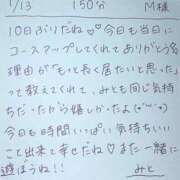 1/13 150分 M様
10日ぶりだね♡♡今日も当日に
コースアップしてくれてありがとう
理由が「もっと長く居たいと思った」
って教えてくれて、みとも同じ気持
ちだったから嬉しかったよ(*˘︶˘*)
今日も時間いっぱい気持ちいい
こと出来て幸せだね♡また一緒に
遊ぼうね!! みと